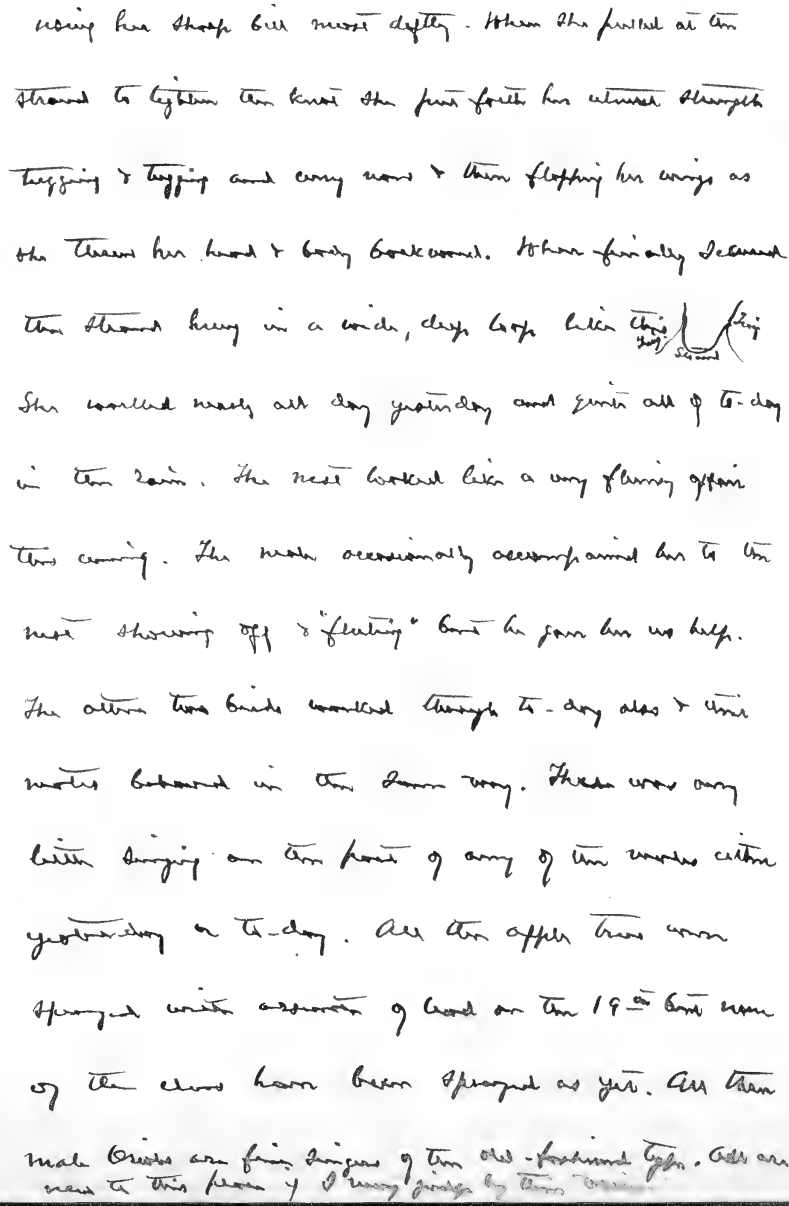 using her sharp bill most deftly. When she pulled at the
strand to tighten the knot she put forth her utmost strength
tugging & tugging and every now & then flapping her wings as
she threw her head & body backward. When finally secured
the strand hung in a wide, deep loop like this
Twig Strand Twig
She worked nearly all day yesterday and quite all of to-day
in the rain. The nest looked like a very flimsy affair
this evening. The male occasionally accompanied her to the
nest showing off & "fluting" but he gave her no help.
The other two birds worked through to-day also & their
mates behaved in the same way. There was very
little singing on the part of any of the males either
yesterday or to-day. All the apple trees were
sprayed with arsenate of lead on the 19th but none
of the elms have been sprayed as yet. All three
male Orioles are fine singers of the old-fashioned type. All are
new to this place if I may judge by their